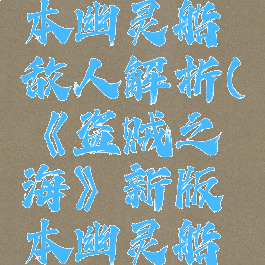 本幽灵船
敌人解析(
《盗贼之
海》新版
本幽灵船